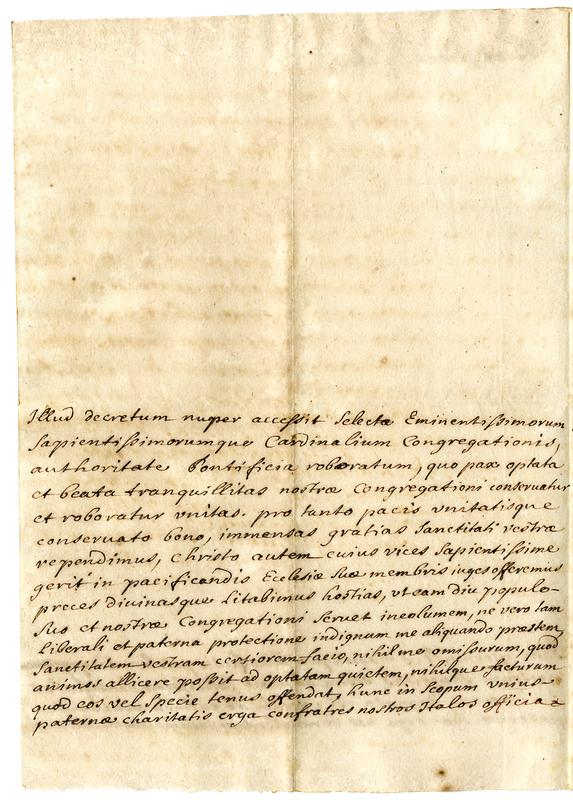 Illud decretum nuper accessit selectæ Eminentissimorum
sapientissimorumque Cardinalium Congregationis,
authoritate Pontificia roboratum, quo pax optata
et beata tranquillitas nostræ Congregationi conservatur
et roboratur vnitas. pro tanto pacis vnitatisque
conseruato bono, immensas gratias Sanctitati vestræ
rependimus, Christo autem cuius vices sapientissime
gerit in pacificandis Ecclesiæ suæ membris iuges offeremus
preces divinasque litabimus hostias, vt eam diu populo
suo et nostræ Congregationi servet incolumem, ne vero tam
liberali et paterna protectione indignum me aliquando præstem,
Sanctitatem vestram certiorem facio, nihil me omissurum, quod
animos allicere possit ad optatam quietem, nihilque facturum
quod eos vel specie tenus offendat, hunc in scopum vnius
paternæ charitatis erga confratres nostros Italos officia